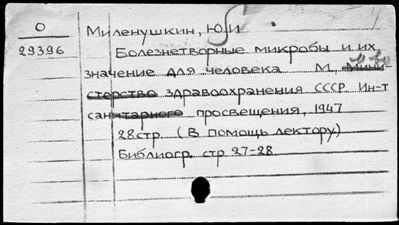 О
29396
Миленушкин, Ю.И.
Болезнетворные микробы и их
значение для человека М., Мини
стерство здравоохранения СССР. Ин-т
санитарного просвещения, 1947
28стр. (В помощь лектору)
Библиогр. стр 27-28.